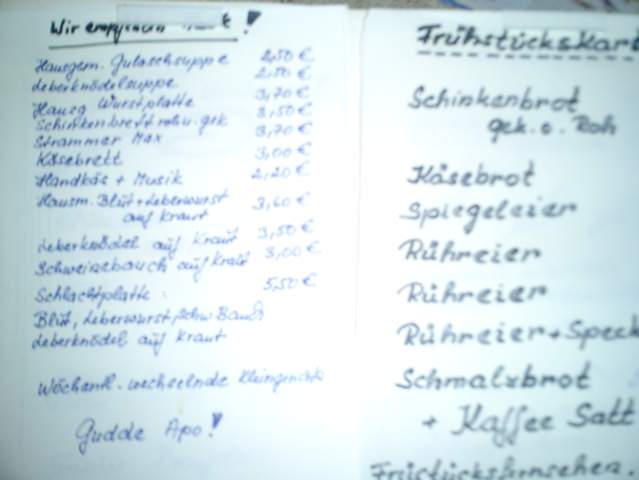 Wir empfehlen !
Hausgem. Gulaschsuppe 2,50 €
Leberknödelsuppe 2,50 €
Hausg Wurstplatte 3,70 €
Schinkenbrett roh u. gek 3,50 €
Strammer Max 3,70 €
Käsebrett 3,00 €
Handkäs + Musik 2,20 €
Hausm. Blut + Leberwurst 3,60 €
auf Kraut
Leberknödel auf Kraut 3,50 €
Schweinebauch auf Kraut 3,00 €
Schlachtplatte 5,50 €
Blut, Leberwurst, Schw Bauch
Leberknödel auf Kraut
Wöchentl. wechselnde Kleingerichte
Gudde Apo!
Frühstückskart
Schinkenbrot
gek. o. Roh
Käsebrot
Spiegeleier
Rühreier
Rühreier
Rühreier + Speck
Schmalzbrot
+ Kaffee Satt
Früstücksfernsehen.